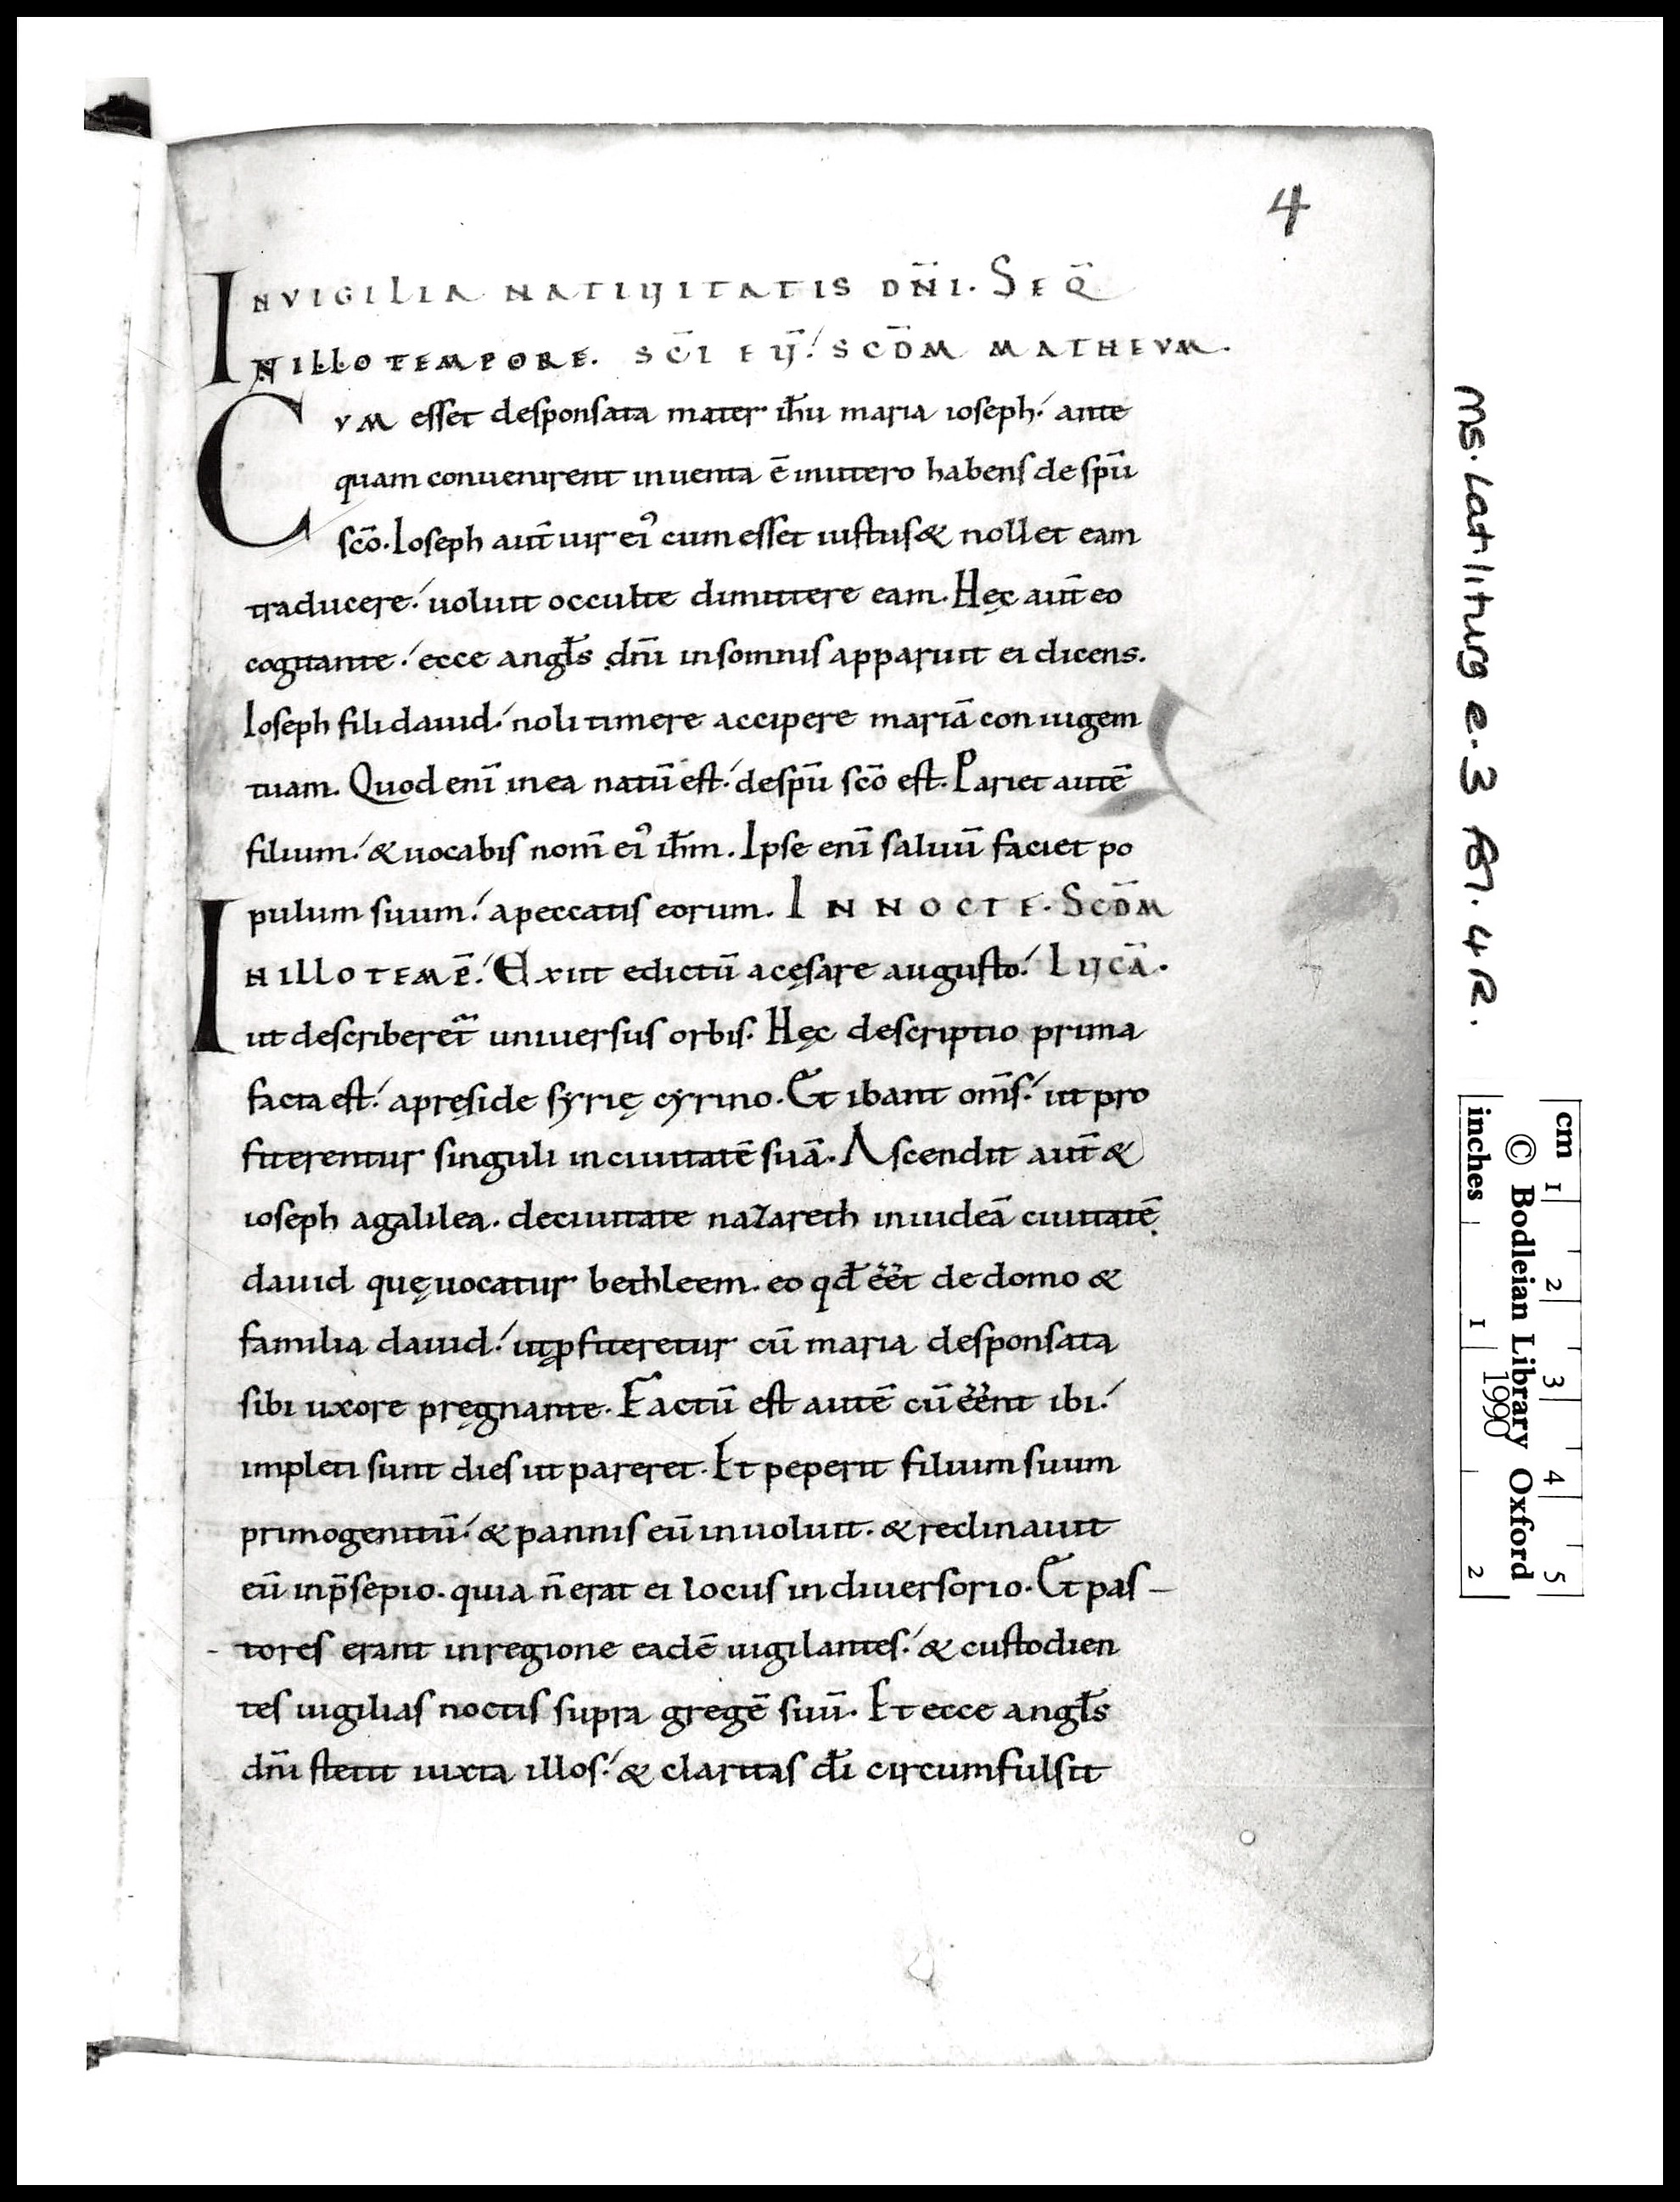 4
IN VIGILIA NATIVITATIS DNI̅. SEQ̅
IN ILLO TEMPORE. SCI̅ EV̅. SCD̅M MATHEVM.
CVM esset desponsata mater ih̅u maria ioseph. ante
quam conuenirent inuenta e̅ inutero habens de spu̅
sco̅. Ioseph aut̅ uir ei᾿ cum esset iustus & nollet eam
traducere. uoluit occulte dimittere eam. Hęc aut̅ eo
cogitante. ecce angl̅s dn̅i insomnis apparuit ei dicens.
Ioseph fili dauid. noli timere accipere maria̅ coniugem
tuam. Quod eni̅ inea natu̅ est. despu̅ sco̅ est. Pariet aute̅
filium. & uocabis nom̅ ei᾿ ih̅m. Ipse eni̅ saluu̅ faciet po
pulum suum. apeccatis eorum. IN NOCTE. SCD̅M
IN ILLO TEMPE̅. Exiit edictu̅ acęsare augusto. LVCA̅.
ut describeret̅ uniuersus orbis. Hęc descriptio prima
facta est. apręside syrię cyrino. Et ibant om̅s. ut pro
fiterentur singuli inciuitate̅ sua̅. Ascendit aut̅ &
ioseph agalilea. deciuitate nazareth iniudea̅ ciuitate̅
dauid quęuocatur bethleem. eo qd̅ ee̅t de domo &
familia dauid. utꝓfiteretur cu̅ maria desponsata
sibi uxore pręgnante. Factu̅ est aute̅ cu̅ ee̅nt ibi.
impleti sunt dies ut pareret. Et peperit filium suum
primogenitu̅. & pannis eu̅ inuoluit. & reclinauit
eu̅ inp̅sepio. quia n̅ erat ei locus indiuersorio. Et pas-
-tores erant inregione eade̅ uigilantes. & custodien
tes uigilias noctis supra grege̅ suu̅. Et ecce angl̅s
dn̅i stetit iuxta illos. & claritas di̅ circumfulsit
Ms. Lat. liturg e. 3 fol. 4 R.
cm 1 2 3 4 5
© Bodleian Library Oxford
1990
inches 1 2